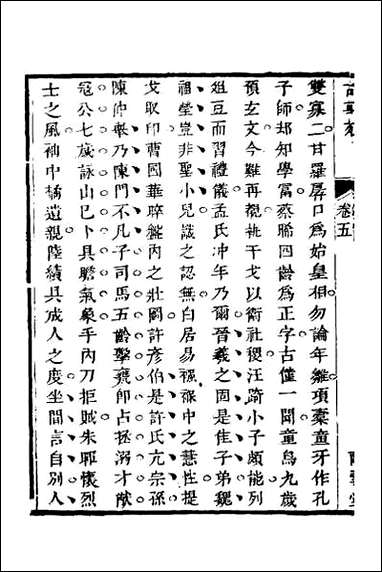 雙寡二甘羅孱口爲始皇相勿論年雛項橐童牙作孔
子師却知學冨蔡㬜四齡爲正字古僅一聞童烏九歲
預玄文今難再覩執干戈以衛社稷汪踦小子頗能列
俎豆而習禮儀孟氏冲年乃爾晉羲之固是佳子弟魏
祖瑩豈非聖小兒識之認無白居易襁褓中之慧性提
戈取印曹國華晬盤內之壯圖許彥伯是許氏亢宗孫
陳仲舉乃陳門不凡子司馬五齡擊甕卽占拯溺才猷
冦公七歲詠山已卜具瞻氣象乎內刀拒賊朱𨜮懷烈
士之風袖中橘遺親陸績具成人之度坐間言自别人
卷五